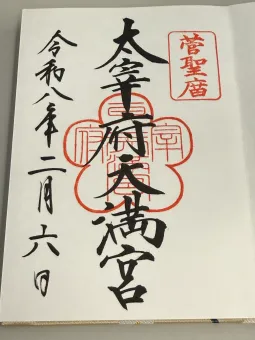 菅聖庿
太宰府天満宮
宰
府
令和八年二月六日